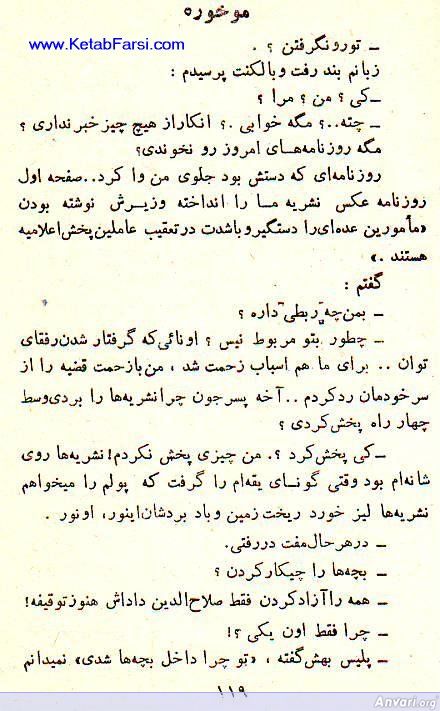 موخوره
www.KetabFarsi.com
ـ تورونگرفتن ؟ .
زبانم بند رفت وبالکنت پرسیدم :
ـ کی ؟ من ؟ مرا ؟
ـ چته..؟ مگه خوابی .؟ انگاراز هیچ چیزخبر نداری ؟
مگه روزنامه‌هـای امروز رو نخوندی؟
روزنامه‌ای که دستش بود جلوی من وا کرد..صفحه اول
روزنامه عکس نشریه مـا را انداخته وزیـرش نوشته بودن
«مأمورین عده‌ای‌را دستگیر و باشدت درتعقیب عاملین‌پخش‌اعلامیه
هستند .»
گفتم :
ـ بمن‌چه ربطی داره ؟
ـ چطور بتو مربوط نیس ؟ اونائی‌که گرفتار شدن‌رفقای
توان .. برای ما هم اسباب زحمت شد ، من‌بازحمت قضیه را از
سرخودمان ردکردم ..آخه پسرجون چرانشریه‌ها را بردی‌وسط
چهار راه پخش‌کردی ؟
ـ کی پخش‌کرد ؟. من چیزی پخش نکردم!نشریه‌ها روی
شانه‌ام بود وقتی گونـای یقه‌ام را گرفت که پولم را میخواهم
نشریه‌ها لیز خورد ریخت زمین وباد بردشان‌اینور، اونور .
ـ درهرحال‌مفت دررفتی.
ـ بچه‌ها را چیکارکردن ؟
ـ همه راآزادکردن فقط صلاح‌الدین داداش هنوزتوقیفه!
ـ چرا فقط اون یکی ؟!
ـ پلیس بهش‌گفته ، «تو چرا داخل بچه‌ها شدی» نمیدانم
۱۱۹
Anvari.org